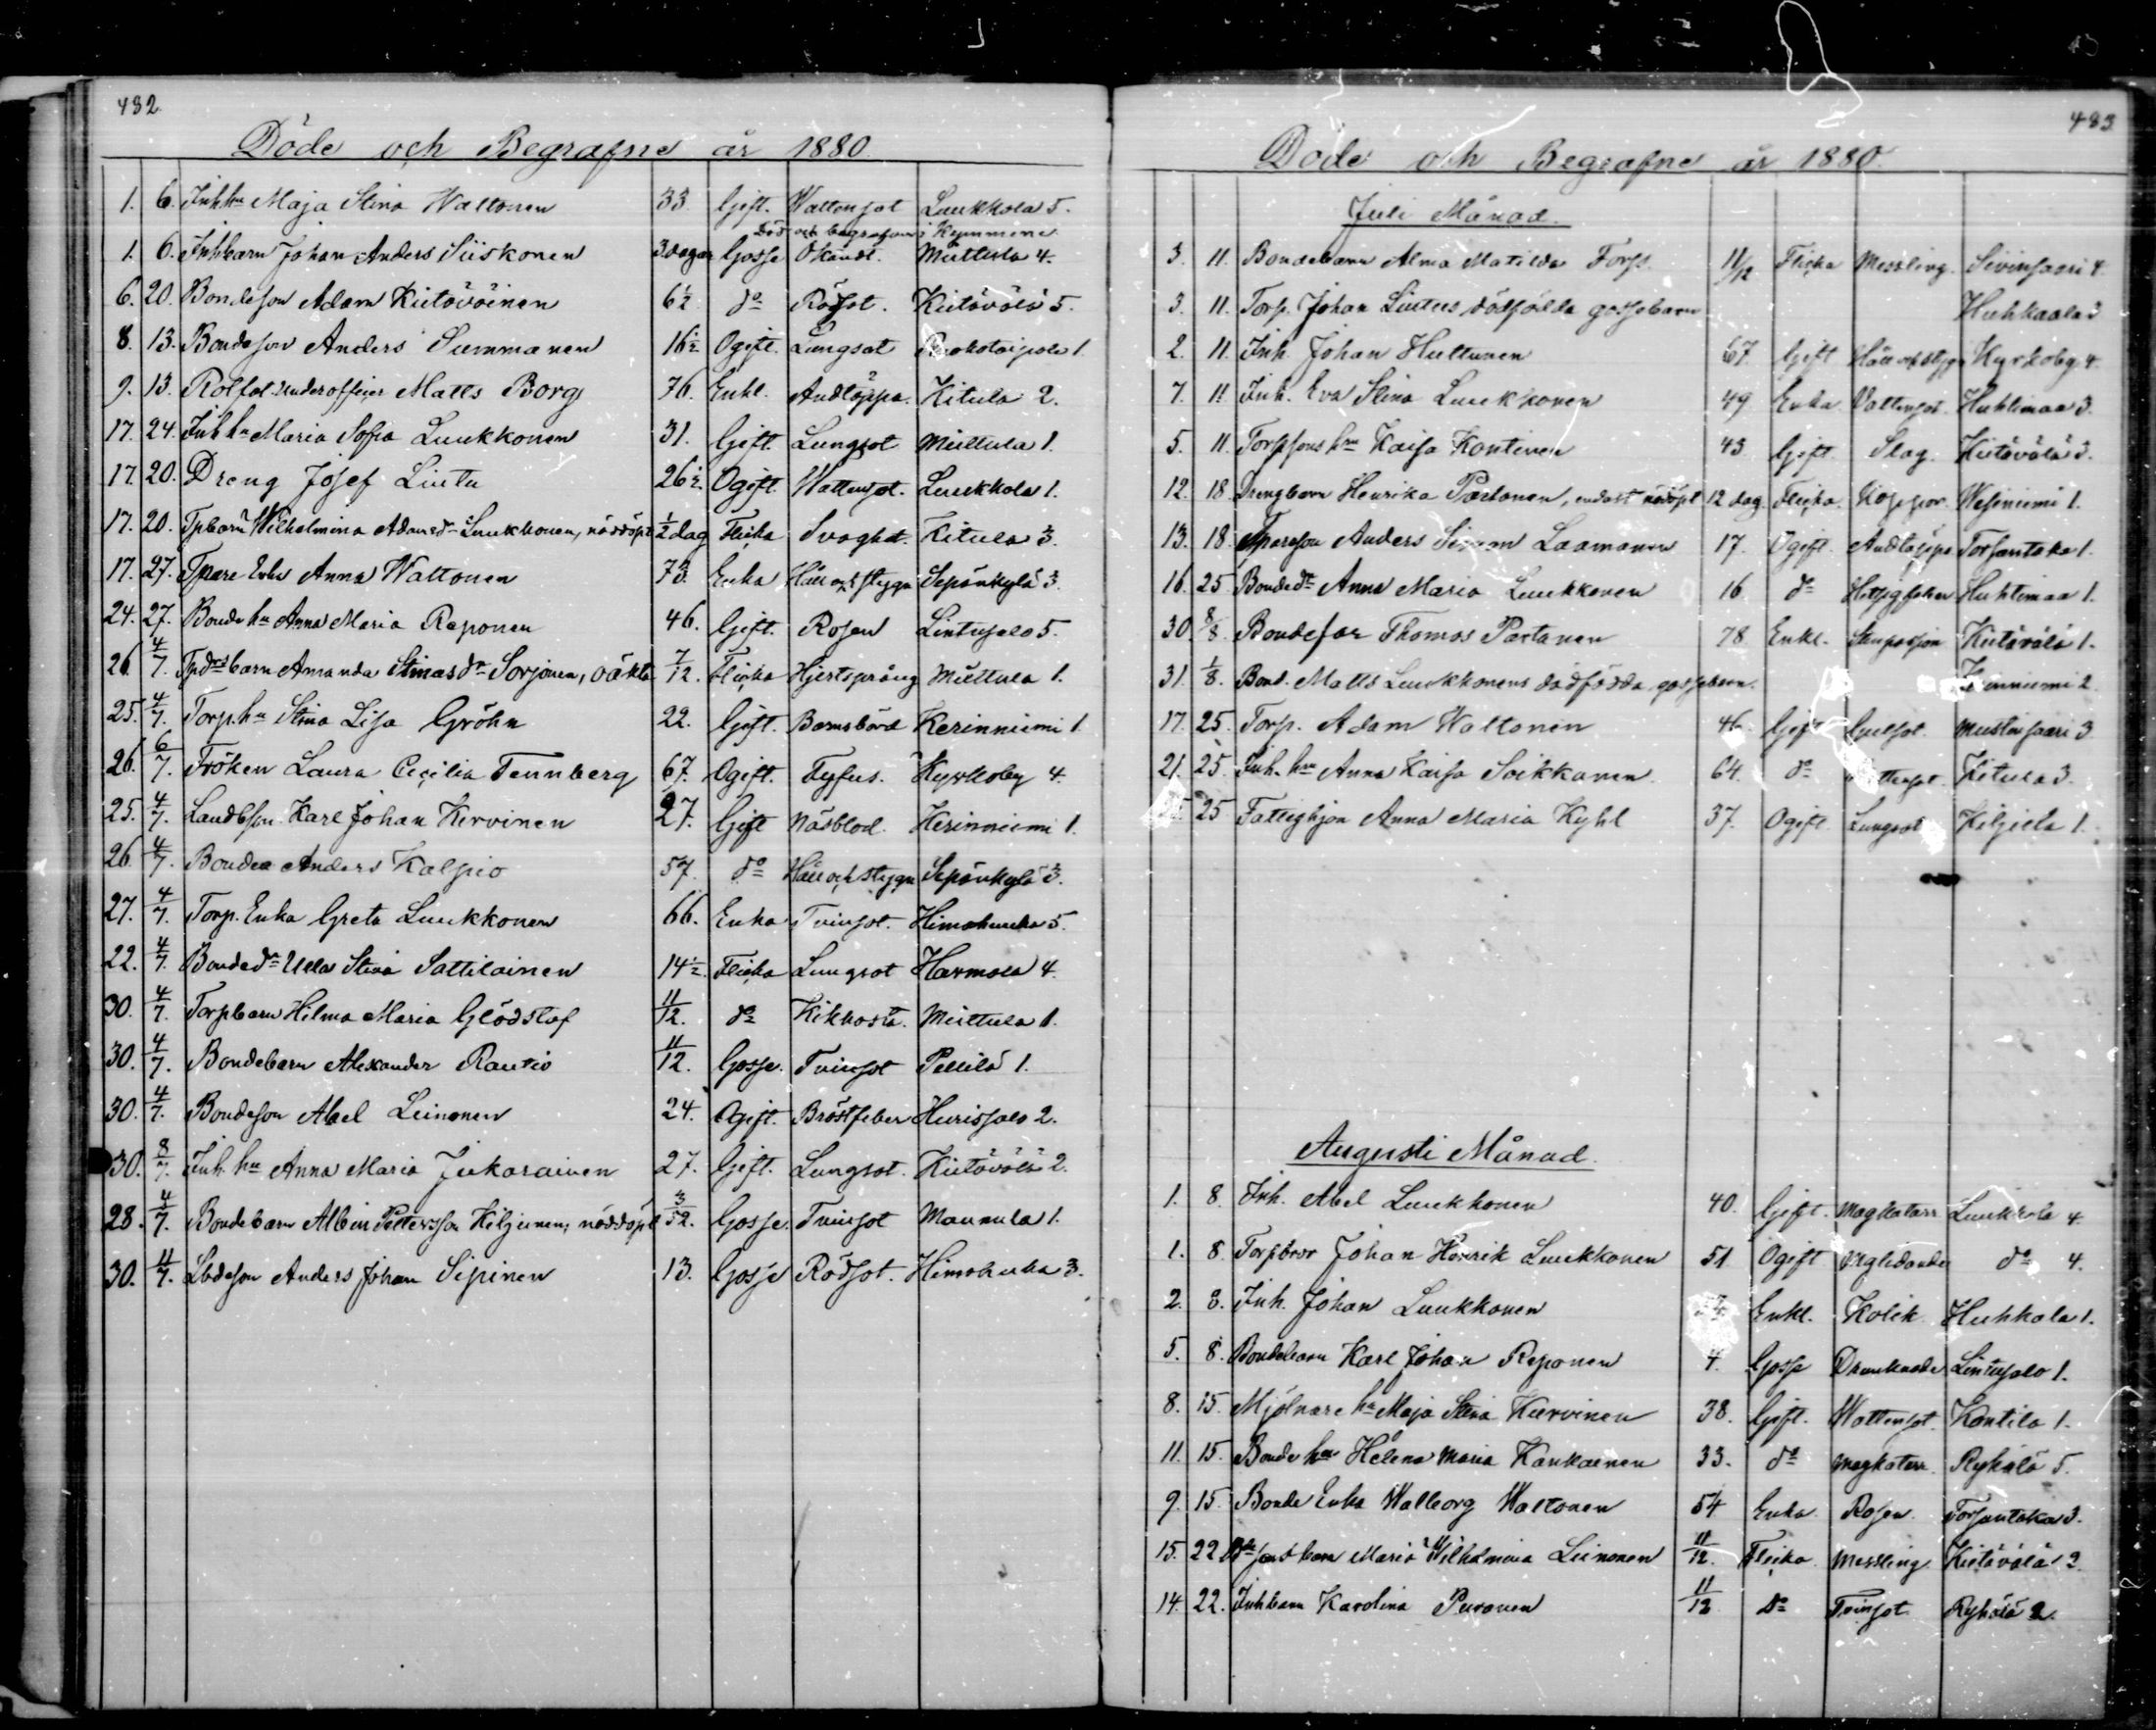 432.
Döde och Begrafne år 1880
1. 6. Inh hu Maja Stina Waltonen 33 Gift. Wattusot Luukkola 5.
Död och begrafven i Kymmene
1. 6. Inhbarn Johan Anders Siiskonen 3 dagar Gosse Okändt. Miettula 4.
6. 20. Bondeson Adam Kietäväinen 6 1/2 do Rödsot. Kietävälä 5.
8. 13. Bondeson Anders Summanen 16 1/2 Ogift. Lungsot Ruokotaipale 1
9. 13. Underofficer Matts Borg 76. Enkl. Andtäppa. Kitula 2.
17. 24. Inh hu Maria Sofia Luukkonen 31. Gift. Lungsot Miettula 1.
17. 20. Dreng Josef Lintu 26 1/2. Ogift. Wattusot. Luukkola 1.
17. 20. Tpbarn Wilhelmina Adamsdr Luukkonen, nöddöpt 1/2 dag Flicka Svaghet. Kitula 3.
17. 27. Tpare Enka Anna Waltonen 73. Enka Håll och stygn Sepänkylä 3.
24. 27. Bonde hu Anna Maria Reponen 46. Gift. Rosen Lintusalo 5.
26. 4/7. Tpdrs barn Amanda Stinasdr Sorjonen, oäkta 7/12. Flicka Hjertsprång Miettula 1.
25. 4/7. Torp. hu Stina Lisa Gröhn 22. Gift. Barnsbörd Kerinniemi 1
26. 6/7. Fröken Laura Cecilia Tennberg 67. Ogift. Tyfus. Kyrkoby 4.
25. 4/7. Landbson Karl Johan Kervinen 27. Gift Näsblod. Kerinniemi 1.
26. 4/7. Bonden Anders Kalpio 57. do Håll och stygn Sepänkylä 3.
27. 4/7. Torp. Enka Greta Luukkonen 66. Enka Tvinsot. Himahuuha 5.
22. 4/7. Bondedr Ulla Stina Sattilainen 14 1/2. Flicka Lungsot Harmala 4.
30. 4/7. Torpbarn Hilma Maria Glödstaf 11/12. do Kikhosta. Miettula 1.
30. 4/7. Bondebarn Alexander Rautio 11/12. Gosse. Tvinsot Pellilä 1.
30. 4/7. Bondeson Abel Leinonen 24. Ogift. Bröstfeber Hurissalo 2.
30. 8/7. Inh. hu Anna Maria Jukarainen 27. Gift. Lungsot. Kietävälä 2.
28. 4/7. Bondebarn Albin Pettersson Kiljunen, nöddöpt 3/52. Gosse. Tvinsot Maunula 1.
30. 11/7. Lbdeson Anders Johan Sipinen 13. Gosse Rödsot. Himahuuha 3.
433
Döde och Begrafne år 1880.
Juli Månad.
3. 11. Bondebarn Alma Matilda Torp. 11/12 Flicka Messling. Sivinsaari 4.
3. 11. Torp. Johan Lintus dödfödda gossebarn Huhkaala 3
2. 11. Inh. Johan Huttunen 67. Gift Håll och stygn Kyrkoby 4.
7. 11. Inh. Eva Stina Luukkonen 49 Enka Vattusot. Huhtimaa 3.
5. 11. Torpsons hu Kaisa Kontinen 43 Gift. Slag. Kietävälä 3.
12. 18 Drengbarn Henrika Partanen, endast nöddöpt 12 dag. Flicka. Koppor. Wesiniemi 1.
13. 18. Tpareson Anders Simon Laamanen 17. Ogift. Andtäppa Torsantaka 1.
16. 25. Bondedr Anna Maria Luukkonen 16 do Huhtimaa 1.
30 8/8. Bondefar Thomas Partanen 78 Enkl. Stenpassion Kietävälä 1.
31. 1/8. Bond. Matts Luukkonens dödfödda gossebarn.
17. 25. Torp. Adam Waltonen 46. Gift Gulsot. Mustinsaari 3.
21. 25. Inh. hu Anna Kaisa Soikkanen. 64. do Kitula 3.
25 Fattighjon Anna Maria Kyhl 37. Ogift. Lungsot Kiljula 1.
Augusti Månad.
1. 8. Inh. Abel Luukkonen 40. Gift. Magkatarr Luukkola 4.
1. 8. Torpbror Johan Henrik Luukkonen 51 Ogift do 4.
2. 8. Inh. Johan Luukkonen Enkl. Kolik Huhkala 1.
5. 8. Bondebarn Karl Johan Reponen 4. Gosse Drunknade Lintusalo 1.
8. 15. Mjölnare hu Maja Stina Kurvinen 38. Gift. Wattusot. Kontila 1.
11. 15. Bonde hu Helena Maria Kankainen 33. do Magkatarr. Ryhälä 5.
9. 15. Bonde Enka Walborg Waltonen 54 Enka. Rosen. Torsantaka 3.
15. 22. barn Maria Wilhelmina Leinonen 11/12. Flicka. Messling. Kietävälä 2.
14. 22. Inhbarn Karolina Puronen 11/12 do Tvinsot Ryhälä 2.